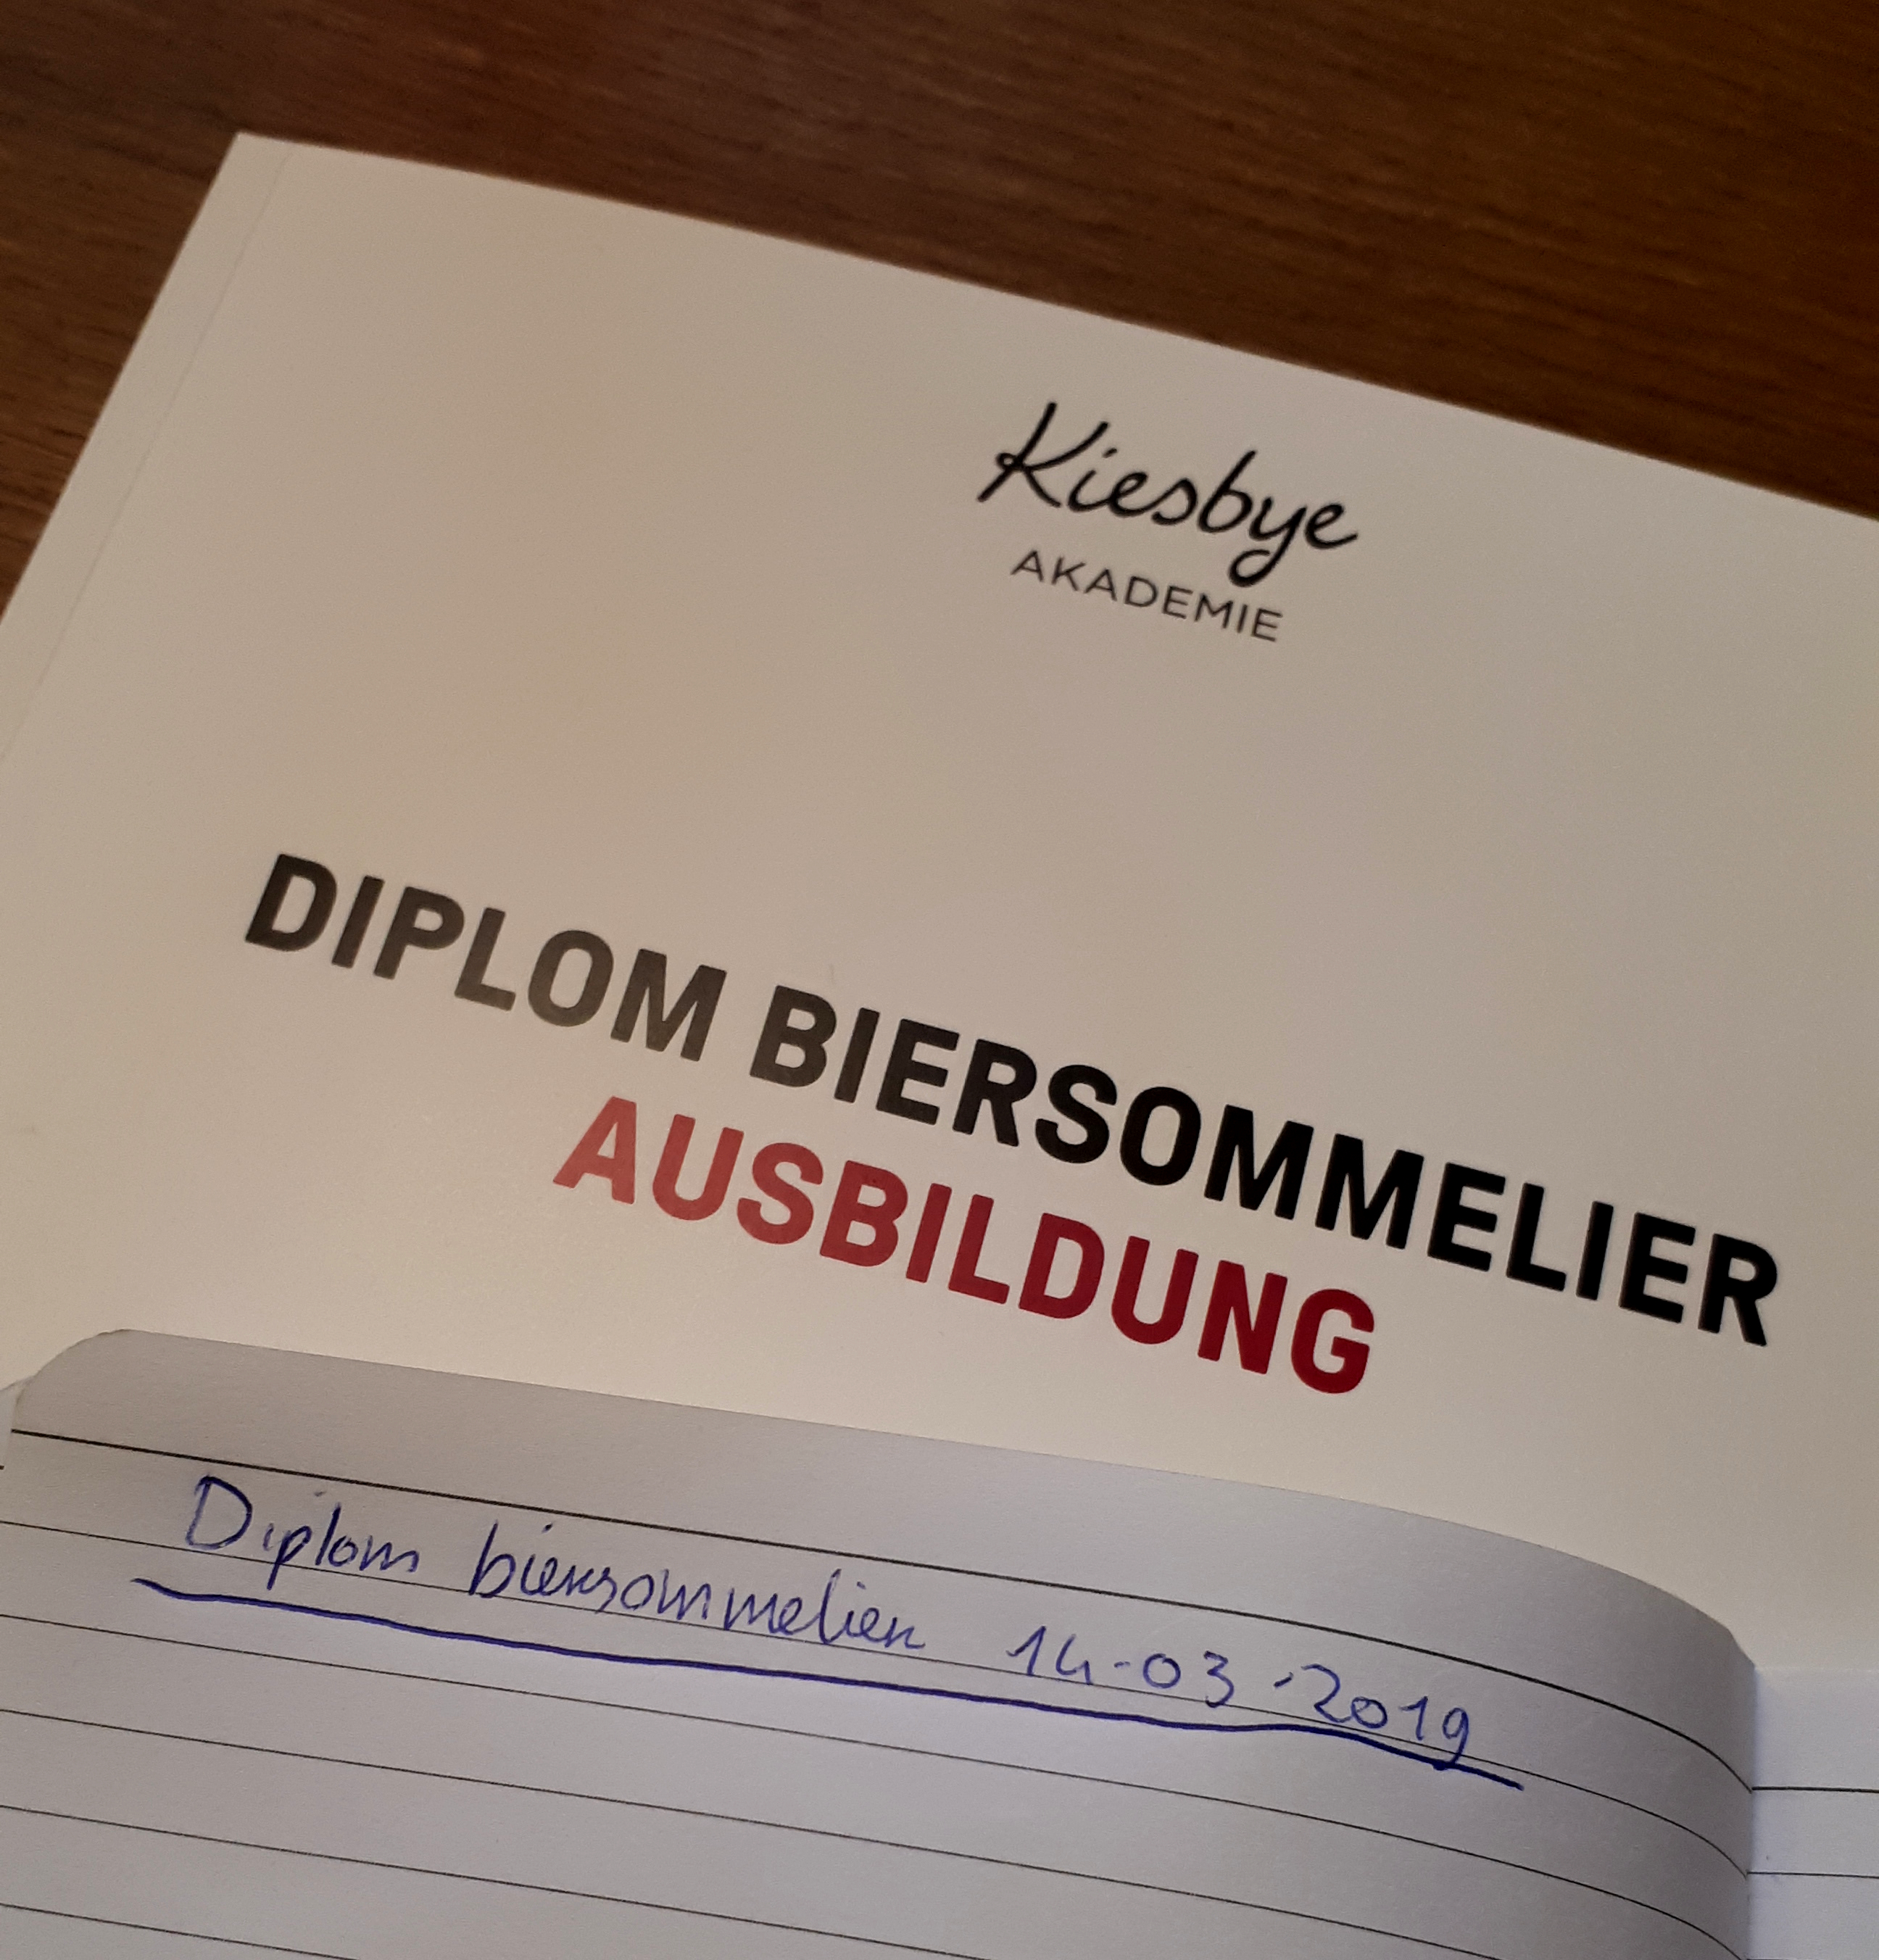 Kiesbye
AKADEMIE
DIPLOM BIERSOMMELIER
AUSBILDUNG
Diplom biersommelier 14-03-2019